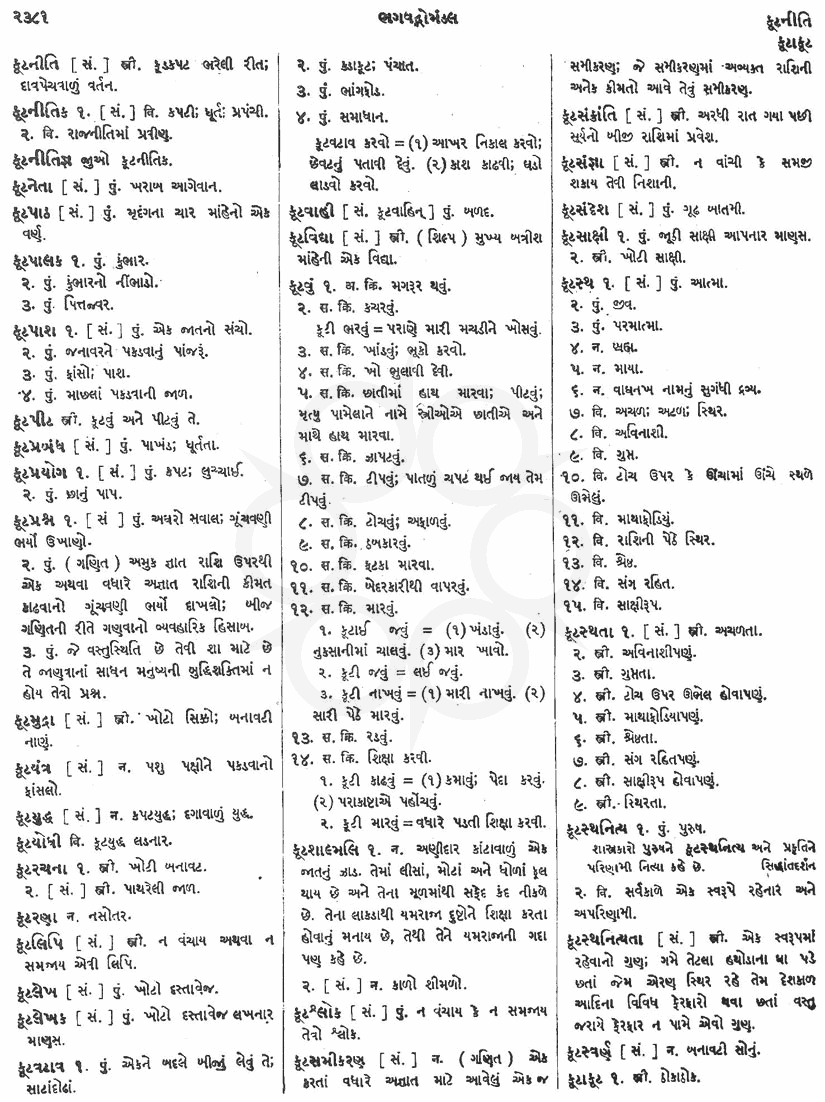 ૨૩૮૧
ભગવદ્ગોમંડલ
કૂટનીતિ
કૂટાકૂટ
કૂટનીતિ [ સં. ] સ્ત્રી. કૂડકપટ ભરેલી રીત;
દાવપેચવાળું વર્તન.
કૂટનીતિક ૧. [ સં. ] વિ. કપટી; ધૂર્ત; પ્રપંચી.
૨. વિ. રાજનીતિમાં પ્રવીણ.
કૂટનીતિજ્ઞ જુઓ કૂટનીતિક.
કૂટનેતા [ સં. ] પું. ખરાબ આગેવાન.
કૂટપાઠ [ સં. ] પું. મૃદંગના ચાર માંહેનો એક
વર્ણ.
કૂટપાલક ૧. પું. કુંભાર.
૨. પું. કુંભારનો નીંભાડો.
૩. પું. પિત્તજ્વર.
કૂટપાશ ૧. [ સં. ] પું. એક જાતનો સંચો.
૨. પું. જનાવરને પકડવાનું પાંજરૂં.
૩. પું. ફાંસો; પાશ.
૪. પું. માછલાં પકડવાની જાળ.
કૂટપીટ સ્ત્રી. કૂટવું અને પીટવું તે.
કૂટપ્રબંધ [ સં. ] પું. પાખંડ; ધૂર્તતા.
કૂટપ્રયોગ ૧. [ સં. ] પું. કપટ; લુચ્ચાઈ.
૨. પું. છાનું પાપ.
કૂટપ્રશ્ન ૧. [ સં ] પું. અઘરો સવાલ; ગૂંચવણી
ભર્યો ઉખાણો.
૨. પું. ( ગણિત ) અમુક જ્ઞાત રાશિ ઉપરથી
એક અથવા વધારે અજ્ઞાત રાશિની કીમત
કાઢવાનો ગૂંચવણી ભર્યો દાખલો; બીજ
ગણિતની રીતે ગણવાનો વ્યવહારિક હિસાબ.
૩. પું. જે વસ્તુસ્થિતિ છે તેવી શા માટે છે
તે જાણવાનાં સાધન મનુષ્યની બુદ્ધિશક્તિમાં ન
હોય તેવો પ્રશ્ન.
કૂટમુદ્રા [ સં. ] સ્ત્રી. ખોટો સિક્કો; બનાવટી
નાણું.
કૂટયંત્ર [ સં. ] ન. પશુ પક્ષીને પકડવાનો
ફાંસલો.
કૂટયુદ્ધ [ સં. ] ન. કપટયુદ્ધ; દગાવાળું યુદ્ધ.
કૂટયોધી વિ. કૂટયુદ્ધ લડનાર.
કૂટરચના ૧. સ્ત્રી. ખોટી બનાવટ.
૨. [ સં. ] સ્ત્રી. પાથરેલી જાળ.
કૂટરણા ન. નસોતર.
કૂટલિપિ [ સં. ] સ્ત્રી. ન વંચાય અથવા ન
સમજાય એવી લિપિ.
કૂટલેખ [ સં. ] પું. ખોટો દસ્તાવેજ.
કૂટલેખક [ સં. ] પું. ખોટો દસ્તાવેજ લખનાર
માણસ.
કૂટવટાવ ૧. પું. એકને બદલે બીજું લેવું તે;
સાટાંદોઢાં.
૨. પું. કડાકૂટ; પંચાત.
૩. પું. ભાંગફોડ.
૪. પું. સમાધાન.
કૂટવટાવ કરવો = (૧) આખર નિકાલ કરવો;
છેવટનું પતાવી દેવું. (૨) કાશ કાઢવી; ઘડો
લાડવો કરવો.
કૂટવાહી [ સં. કૂટવાહિન્ ] પું. બળદ.
કૂટવિદ્યા [ સં. ] સ્ત્રી. ( શિલ્પ ) મુખ્ય બત્રીશ
માંહેની એક વિદ્યા.
કૂટવું ૧. અ. ક્રિ. મગરૂર થવું.
૨. સ. ક્રિ. કચરવું.
કૂટી ભરવું = પરાણે મારી મચડીને ખોસવું.
૩. સ. ક્રિ. ખાંડવું; ભૂકો કરવો.
૪. સ. ક્રિ. ખો ભુલાવી દેવી.
૫. સ. ક્રિ. છાતીમાં હાથ મારવા; પીટવું;
મૃત્યુ પામેલાને નામે સ્ત્રીઓએ છાતીએ અને
માથે હાથ મારવા.
૬. સ. ક્રિ. ઝાપટવું.
૭. સ. ક્રિ. ટીપવું; પાતળું ચપટ થઈ જાય તેમ
ટીપવું.
૮. સ. ક્રિ. ટોચવું; અફાળવું.
૯. સ. ક્રિ. ઠબકારવું.
૧૦. સ. ક્રિ. ફટકા મારવા.
૧૧. સ. ક્રિ. બેદરકારીથી વાપરવું.
૧૨. સ. ક્રિ. મારવું.
૧. કૂટાઈ જવું = (૧) ખંડાવું. (૨)
નુકસાનીમાં ચાલવું. (૩) માર ખાવો.
૨. કૂટી જવું = લઈ જવું.
૩. કૂટી નાખવું = (૧) મારી નાખવું. (૨)
સારી પેઠે મારવું.
૧૩. સ. ક્રિ. રડવું.
૧૪. સ. ક્રિ. શિક્ષા કરવી.
૧. કૂટી કાઢવું = (૧) કમાવું; પેદા કરવું.
(૨) પરાકાષ્ટાએ પહોંચવું.
૨. કૂટી મારવું = વધારે પડતી શિક્ષા કરવી.
કૂટશાલ્મલિ ૧. ન. અણીદાર કાંટાવાળું એક
જાતનું ઝાડ. તેમાં લીસાં, મોટાં અને ધોળાં ફૂલ
થાય છે અને તેના મૂળમાંથી સફેદ કંદ નીકળે
છે. તેના લાકડાથી યમરાજ દુષ્ટોને શિક્ષા કરતા
હોવાનું મનાય છે, તેથી તેને યમરાજની ગદા
પણ કહે છે.
૨. [ સં. ] ન. કાળો શીમળો.
કૂટશ્લોક [ સં. ] પું. ન વંચાય કે ન સમજાય
તેવો શ્લોક.
કૂટસમીકરણ [ સં. ] ન. ( ગણિત ) એક
કરતાં વધારે અજ્ઞાત માટે આવેલું એક જ
સમીકરણ; જે સમીકરણમાં અવ્યક્ત રાશિની
અનેક કીમતો આવે તેવું સમીકરણ.
કૂટસંક્રાંતિ [ સં. ] સ્ત્રી. અરધી રાત ગયા પછી
સૂર્યનો બીજી રાશિમાં પ્રવેશ.
કૂટસંજ્ઞા [ સં. ] સ્ત્રી. ન વાંચી કે સમજી
શકાય તેવી નિશાની.
કૂટસંદેશ [ સં. ] પું. ગૂઢ બાતમી.
કૂટસાક્ષી ૧. પું. જૂઠી સાક્ષી આપનાર માણસ.
૨. સ્ત્રી. ખોટી સાક્ષી.
કૂટસ્થ ૧. [ સં. ] પું. આત્મા.
૨. પું. જીવ.
૩. પું. પરમાત્મા.
૪. ન. બ્રહ્મ.
૫. ન. માયા.
૬. ન. વાઘનખ નામનું સુગંધી દ્રવ્ય.
૭. વિ. અચળ; અટળ; સ્થિર.
૮. વિ. અવિનાશી.
૯. વિ. ગુપ્ત.
૧૦. વિ. ટોચ ઉપર કે ઊંચામાં ઊંચે સ્થળે
ઊભેલું.
૧૧. વિ. માથાફોડિયું.
૧૨. વિ. રાશિની પેઠે સ્થિર.
૧૩. વિ. શ્રેષ્ઠ.
૧૪. વિ. સંગ રહિત.
૧૫. વિ. સાક્ષીરૂપ.
કૂટસ્થતા ૧. [ સં. ] સ્ત્રી. અચળતા.
૨. સ્ત્રી. અવિનાશીપણું.
૩. સ્ત્રી. ગુપ્તતા.
૪. સ્ત્રી. ટોચ ઉપર ઊભેલ હોવાપણું.
૫. સ્ત્રી. માથાફોડિયાપણું.
૬. સ્ત્રી. શ્રેષ્ઠતા.
૭. સ્ત્રી. સંગ રહિતપણું.
૮. સ્ત્રી. સાક્ષીરૂપ હોવાપણું.
૯. સ્ત્રી. સ્થિરતા.
કૂટસ્થનિત્ય ૧. પું. પુરુષ.
શાસ્ત્રકારો પુરુષને કૂટસ્થનિત્ય અને પ્રકૃતિને
પરિણામી નિત્યા કહે છે. સિદ્ધાંતદર્શન
૨. વિ. સર્વકાળે એક સ્વરૂપે રહેનાર અને
અપરિણામી.
કૂટસ્થનિત્યતા [ સં. ] સ્ત્રી. એક સ્વરૂપમાં
રહેવાનો ગુણ; ગમે તેટલા હથોડાના ઘા પડે
છતાં જેમ એરણ સ્થિર રહે તેમ દેશકાળ
આદિના વિવિધ ફેરફારો થવા છતાં વસ્તુ
જરાયે ફેરફાર ન પામે એવો ગુણ.
કૂટસ્વર્ણ [ સં. ] ન. બનાવટી સોનું.
કૂટાકૂટ ૧. સ્ત્રી. ઠોકાઠોક.